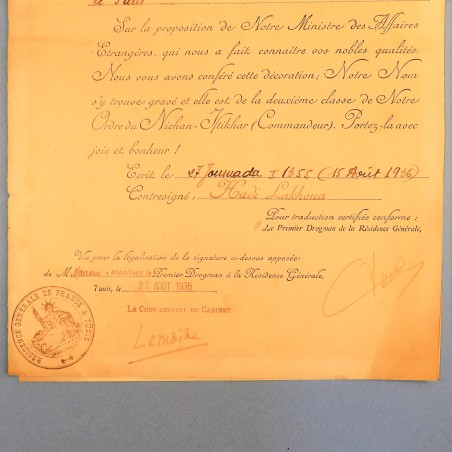 à Paris
Sur la proposition de Notre Ministre des Affaires
Etrangères, qui nous a fait connaître vos nobles qualités,
Nous vous avons conféré cette décoration; Notre Nom
s'y trouve gravé et elle est de la deuxième classe de Notre
Ordre du Nichan-Iftikhar (Commandeur). Portez-la avec
joie et bonheur !
Ecrit le 27 Joumada I 1355 (15 Août 1936)
Contresigné : Hadi Lakhoua
Pour traduction certifiée conforme :
Le Premier Drogman de la Résidence Générale,
Vu pour la légalisation de la signature ci-dessus apposée
de M. suppléant le Premier Drogman à la Résidence Générale,
Tunis, le 25 AOUT 1936
LE CHEF ADJOINT DU CABINET
Lemoine
RÉSIDENCE GÉNÉRALE DE FRANCE A TUNIS